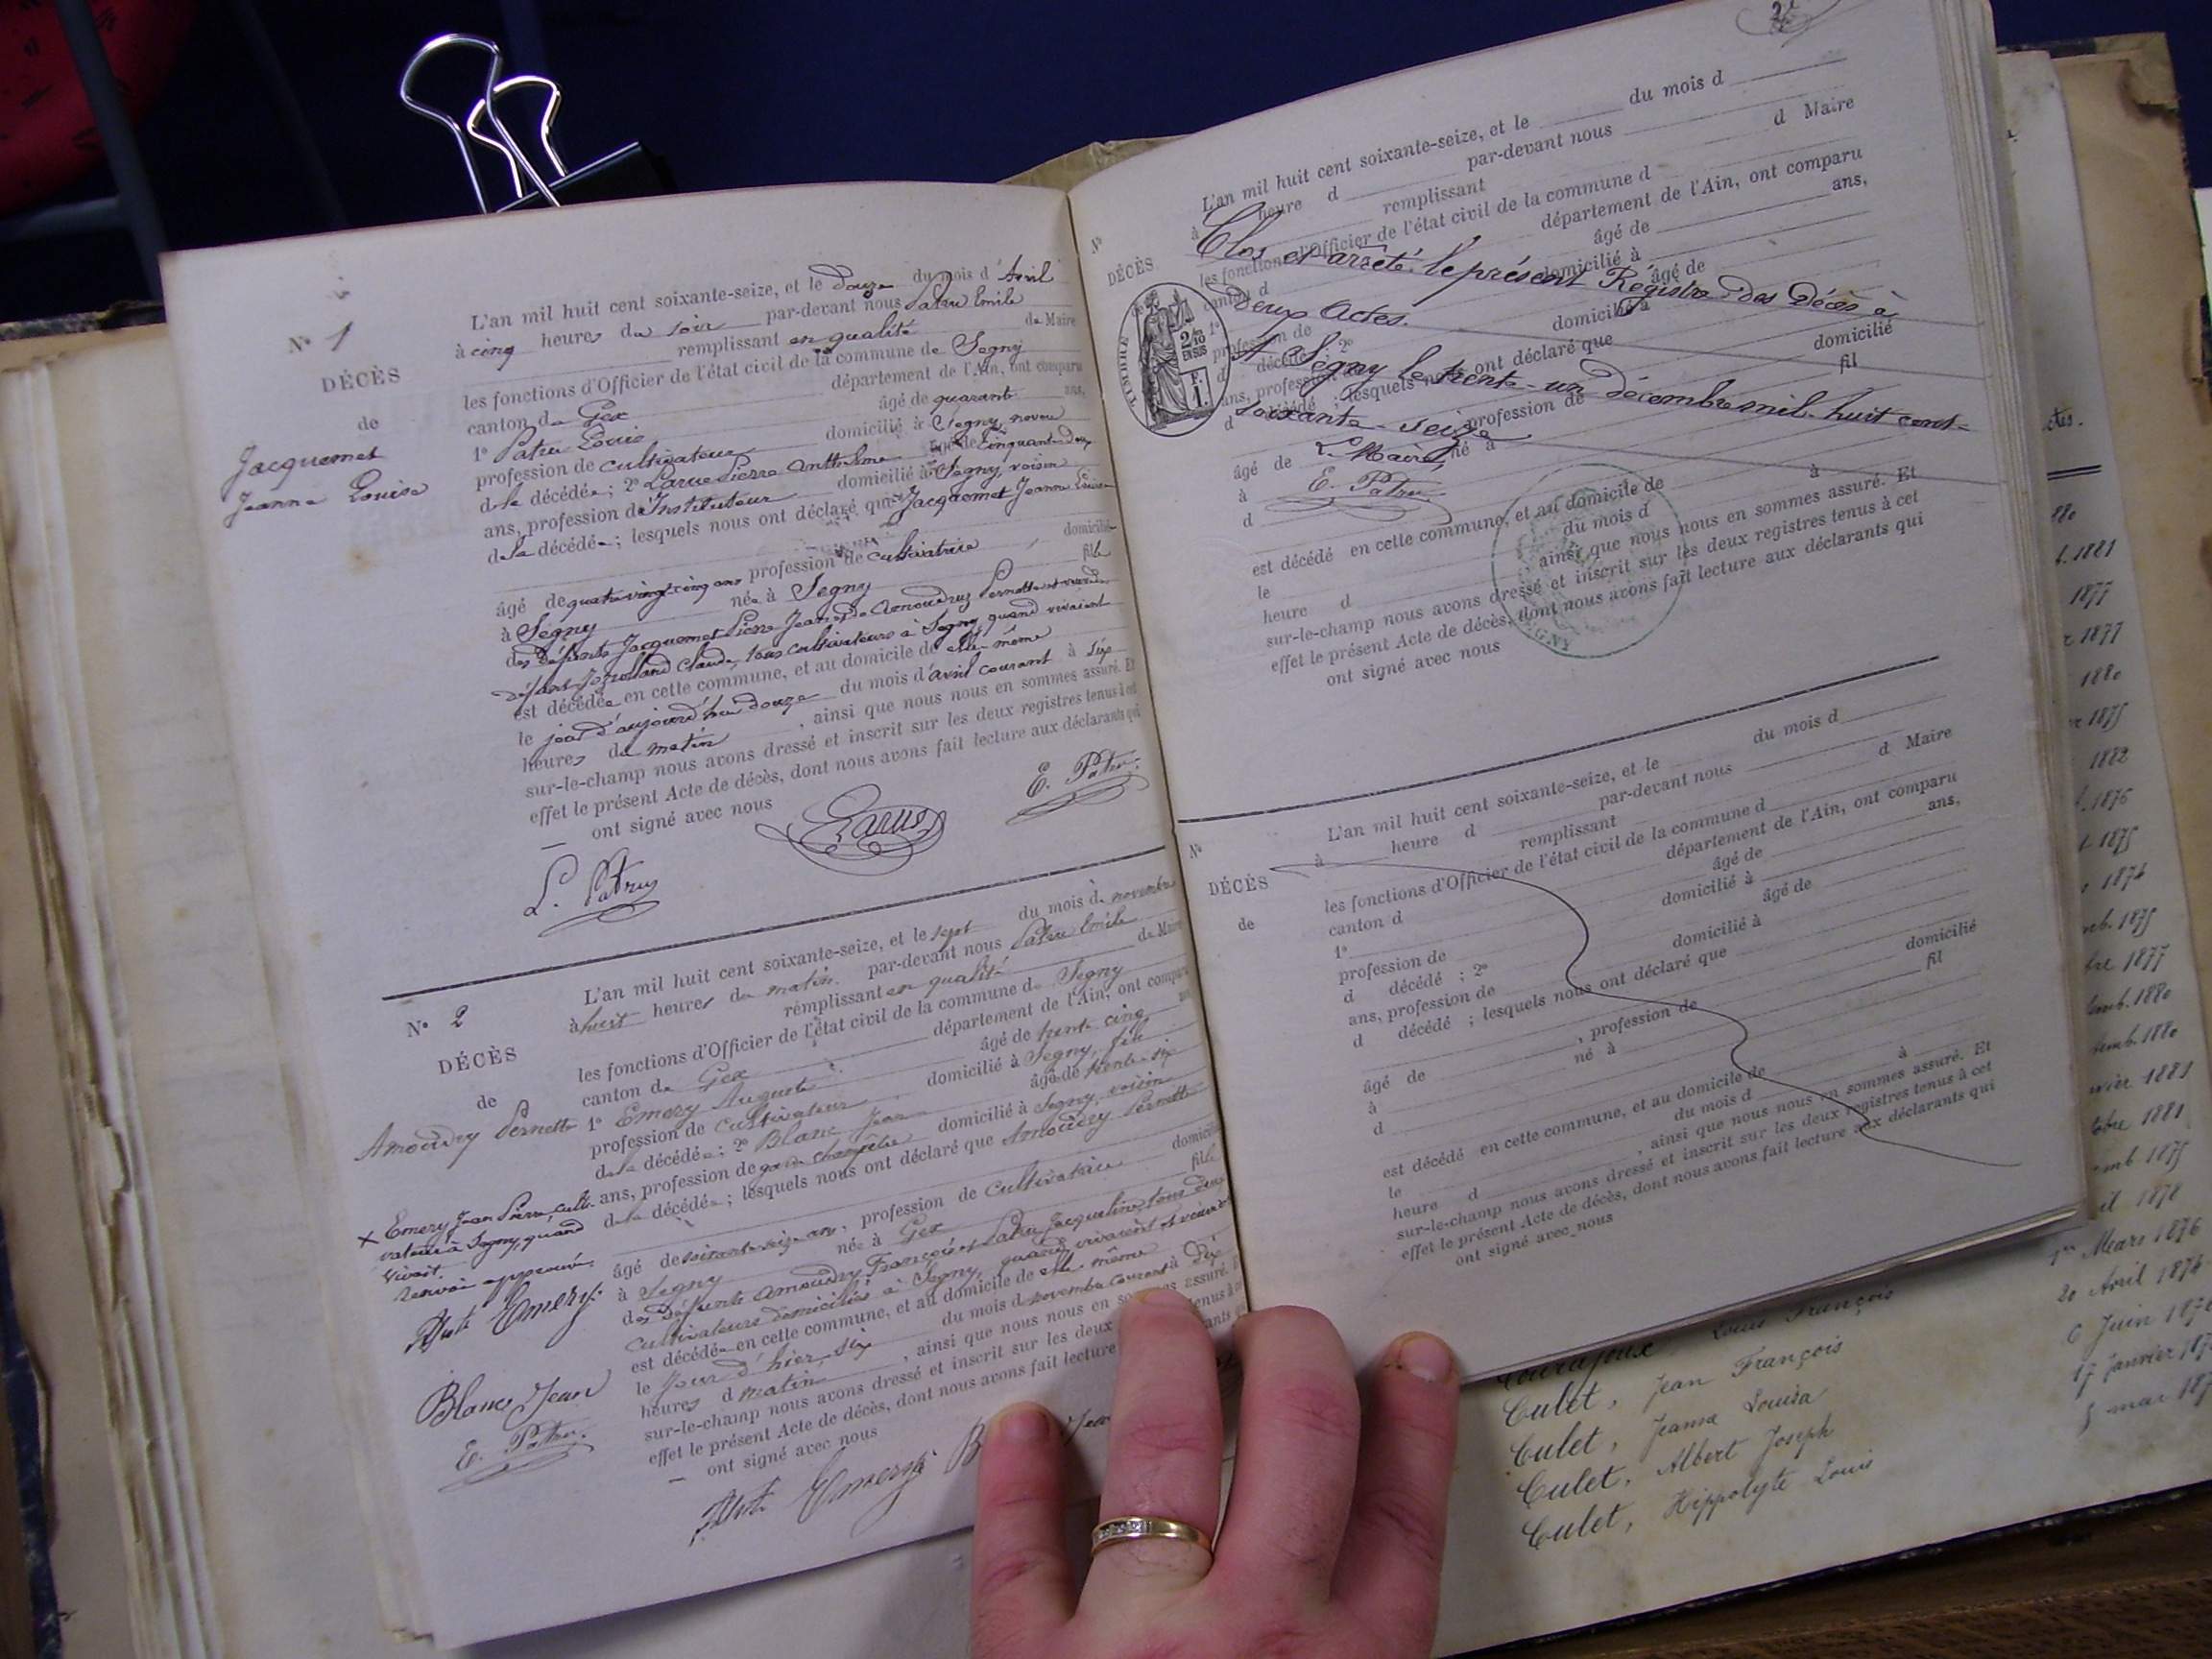 N° 1
DÉCÈS
de
Jacquemet
Jeanne Louise
L'an mil huit cent soixante-seize, et le douze du mois d'Avril
à cinq heures du soir par-devant nous Patru Emile
remplissant en qualité de Maire
les fonctions d'Officier de l'état civil de la commune de Segny
canton de Gex département de l'Ain, ont comparu
1° Patru Louis âgé de quarante ans,
profession de cultivateur domicilié à Segny, neveu
de la décédée; 2° Larue Pierre Anthelme âgé de cinquante-deux
ans, profession d'Instituteur domicilié à Segny, voisin
de la décédée; lesquels nous ont déclaré que Jacquemet Jeanne Louise
profession de cultivatrice, domiciliée
âgé de quatre vingt-cinq ans née à Segny fille
à Segny
des défunts Jacquemet Pierre Jean et de Amoudruz Pernette et veuve de
défunt Claude, tous cultivateurs à Segny, quand vivaient
est décédée en cette commune, et au domicile de elle-même
le jour d'aujourd'hui douze du mois d'avril courant à six
heures du matin, ainsi que nous nous en sommes assuré. Et
sur-le-champ nous avons dressé et inscrit sur les deux registres tenus à cet
effet le présent Acte de décès, dont nous avons fait lecture aux déclarants qui
ont signé avec nous
E. Patru
Larue
L. Patru
N° 2
DÉCÈS
de
Amoudry Pernette
L'an mil huit cent soixante-seize, et le sept du mois de novembre
à huit heures du matin par-devant nous Patru Emile
remplissant en qualité de Maire
les fonctions d'Officier de l'état civil de la commune de Segny
canton de Gex département de l'Ain, ont comparu
1° Emery Auguste âgé de trente cinq ans
profession de cultivateur domicilié à Segny, fils
de la décédée; 2° Blanc Jean âgé de trente-six
ans, profession de garde champêtre domicilié à Segny, voisin
de la décédée; lesquels nous ont déclaré que Amoudry Pernette
profession de cultivatrice domiciliée
âgé de soixante seize ans née à Gex fille
à Segny
des défunts Amoudry François et Patru Jacqueline, tous deux
cultivateurs domiciliés à Segny, quand vivaient et veuve
est décédée en cette commune, et au domicile de elle-même
le jour d'hier, six du mois de novembre courant à dix
heures d matin, ainsi que nous nous en sommes assuré.
sur-le-champ nous avons dressé et inscrit sur les deux tenus à
effet le présent Acte de décès, dont nous avons fait lecture
ont signé avec nous
Emery
+ Emery Jean Pierre, culti-
vateur à Segny, quand
vivait.
renvoi approuvé.
Emery
Blanc Jean
E. Patru
2e
N°
DÉCÈS
L'an mil huit cent soixante-seize, et le du mois d
à heure d par-devant nous
remplissant d Maire
les fonctions d'Officier de l'état civil de la commune d
canton d département de l'Ain, ont comparu
1° âgé de ans,
profession de domicilié à
d décédé; 2° âgé de
ans, profession de domicilié à
d décédé; lesquels nous ont déclaré que
profession de domicilié
âgé de né à fil
à
d
est décédé en cette commune, et au domicile de
le du mois d à
heure d ainsi que nous nous en sommes assuré. Et
sur-le-champ nous avons dressé et inscrit sur les deux registres tenus à cet
effet le présent Acte de décès, dont nous avons fait lecture aux déclarants qui
ont signé avec nous
Clos et arrêté le présent Régistre des Décès à
deux Actes.
A Segny le trente-un décembre mil-huit cent-
soixante-seize
Le Maire,
E. Patru
TIMBRE
2/10
EN SUS
F.
1.
N°
DÉCÈS
de
L'an mil huit cent soixante-seize, et le du mois d
à heure d par-devant nous
remplissant d Maire
les fonctions d'Officier de l'état civil de la commune d
canton d département de l'Ain, ont comparu
1° âgé de ans,
profession de domicilié à
d décédé; 2° âgé de
ans, profession de domicilié à
d décédé; lesquels nous ont déclaré que
, profession de domicilié
âgé de né à fil
à
d
est décédé en cette commune, et au domicile de
le du mois d à
heure d , ainsi que nous nous en sommes assuré. Et
sur-le-champ nous avons dressé et inscrit sur les deux registres tenus à cet
effet le présent Acte de décès, dont nous avons fait lecture aux déclarants qui
ont signé avec nous
1881
1877
1877
1880
1875
1882
1876
1875
1874
1875
1877
1880
1880
1881
1881
1875
1878
1er Mars 1876
20 Avril 1874
6 Juin
17 Janvier
5 mai
Louis François
Culet, Jean François
Culet, Jeanne Louisa
Culet, Albert Joseph
Culet, Hippolyte Louis